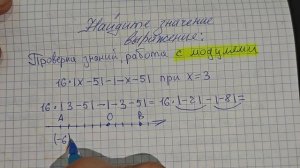 Найдите значение
выражение:
Проверка знаний, работа с модулями
16·|x-5|-|-x-5| при x=3
16·|3-5|-|-3-5|=16·|-2|-|-8|=
A O B
(-6